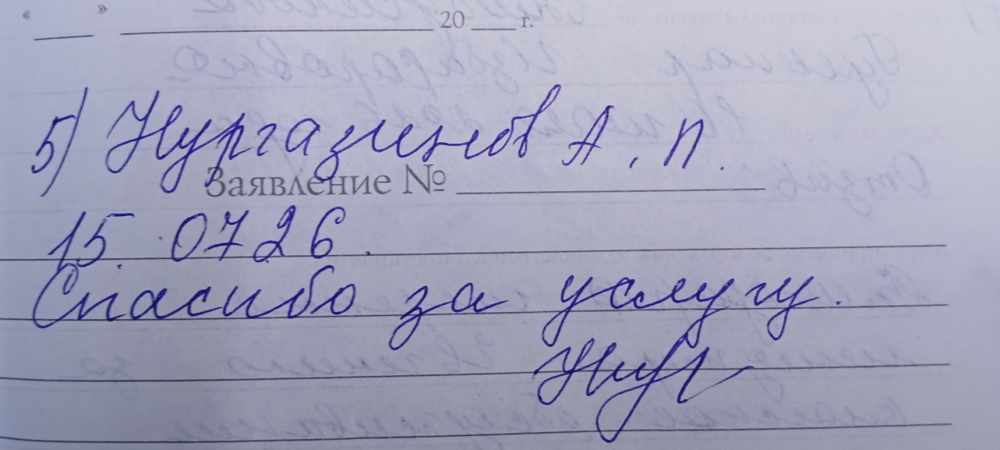 « » 20 г.
5) Нургазинов А. П.
Заявление №
15. 07 26.
Спасибо за услугу.